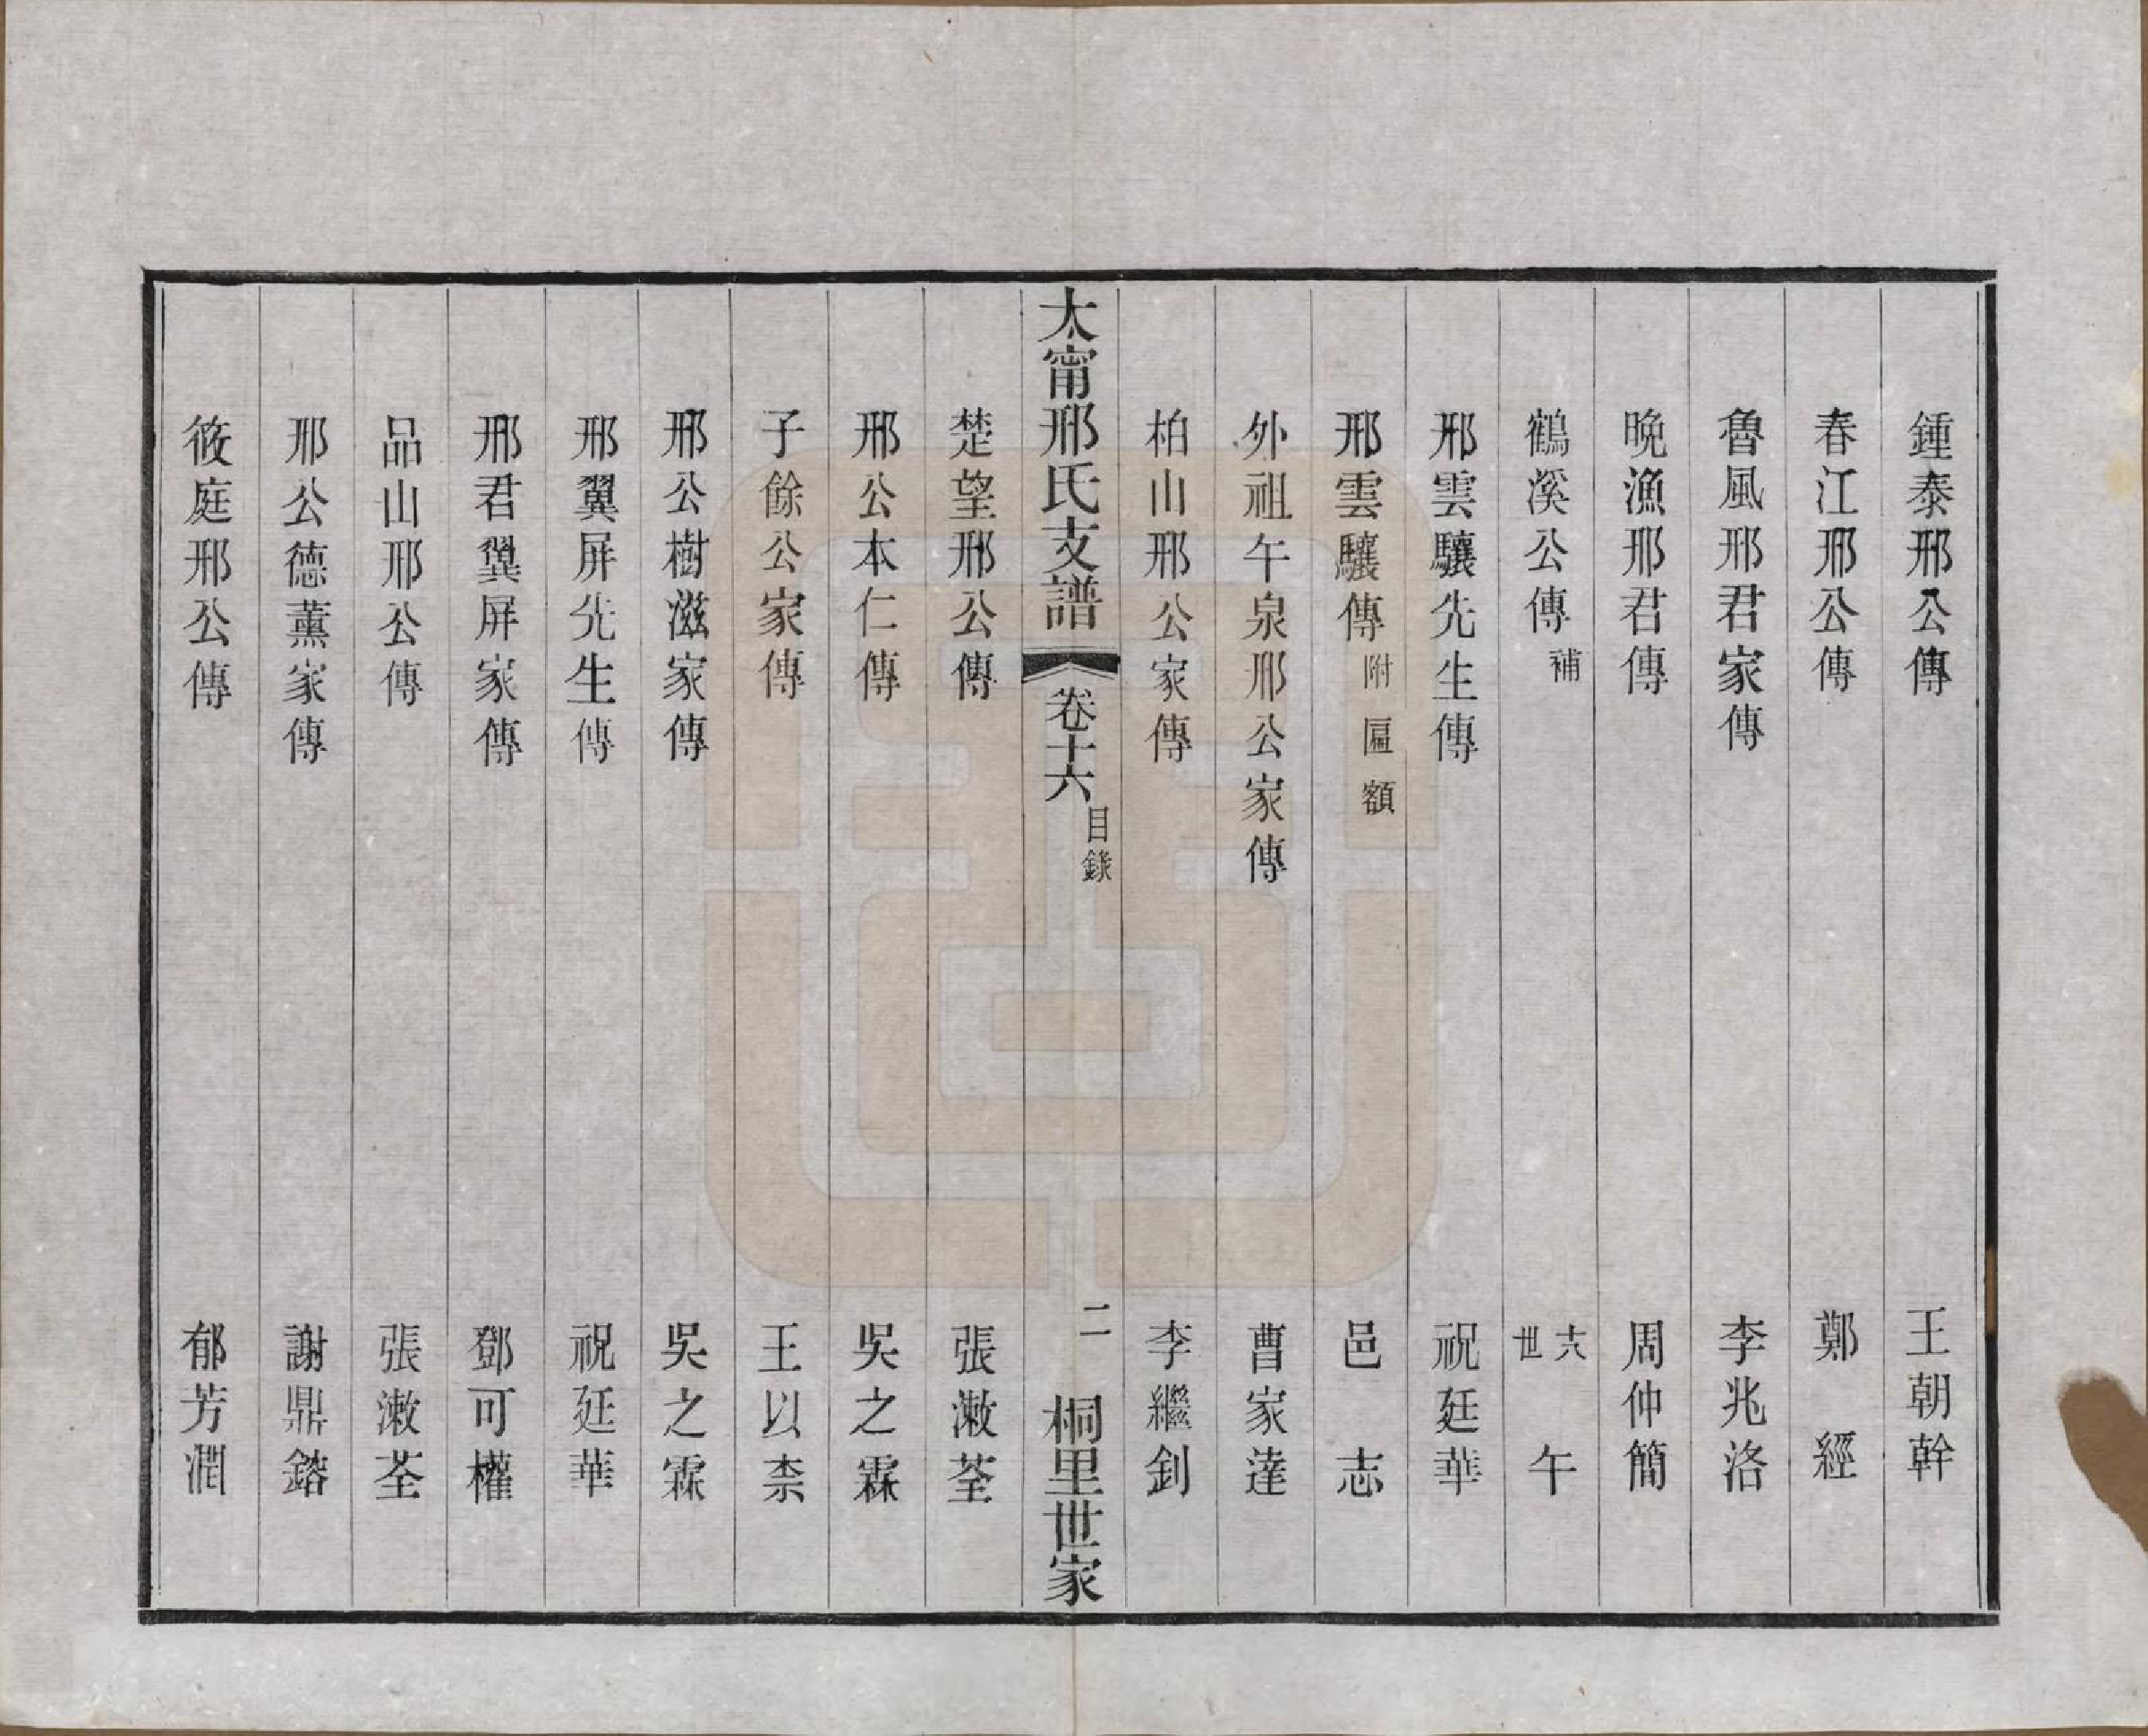 鍾泰邢公傳 王朝幹
春江邢公傳 鄭經
魯風邢君家傳 李兆洛
晩漁邢君傳 周仲簡
鶴溪公傳 補 六世 午
邢雲驤先生傳 祝廷華
邢雲驤傳 附匾額 邑志
外祖午泉邢公家傳 曹家達
柏山邢公家傳 李繼釗
太甯邢氏支譜 卷十六 目錄 二 桐里世家
楚望邢公傳 張漱荃
邢公本仁傳 吳之霖
子餘公家傳 王以柰
邢公樹滋家傳 吳之霖
邢翼屏先生傳 祝廷華
邢君翼屏家傳 鄧可權
品山邢公傳 張漱荃
邢公德薰家傳 謝鼎鎔
筱庭邢公傳 郁芳潤